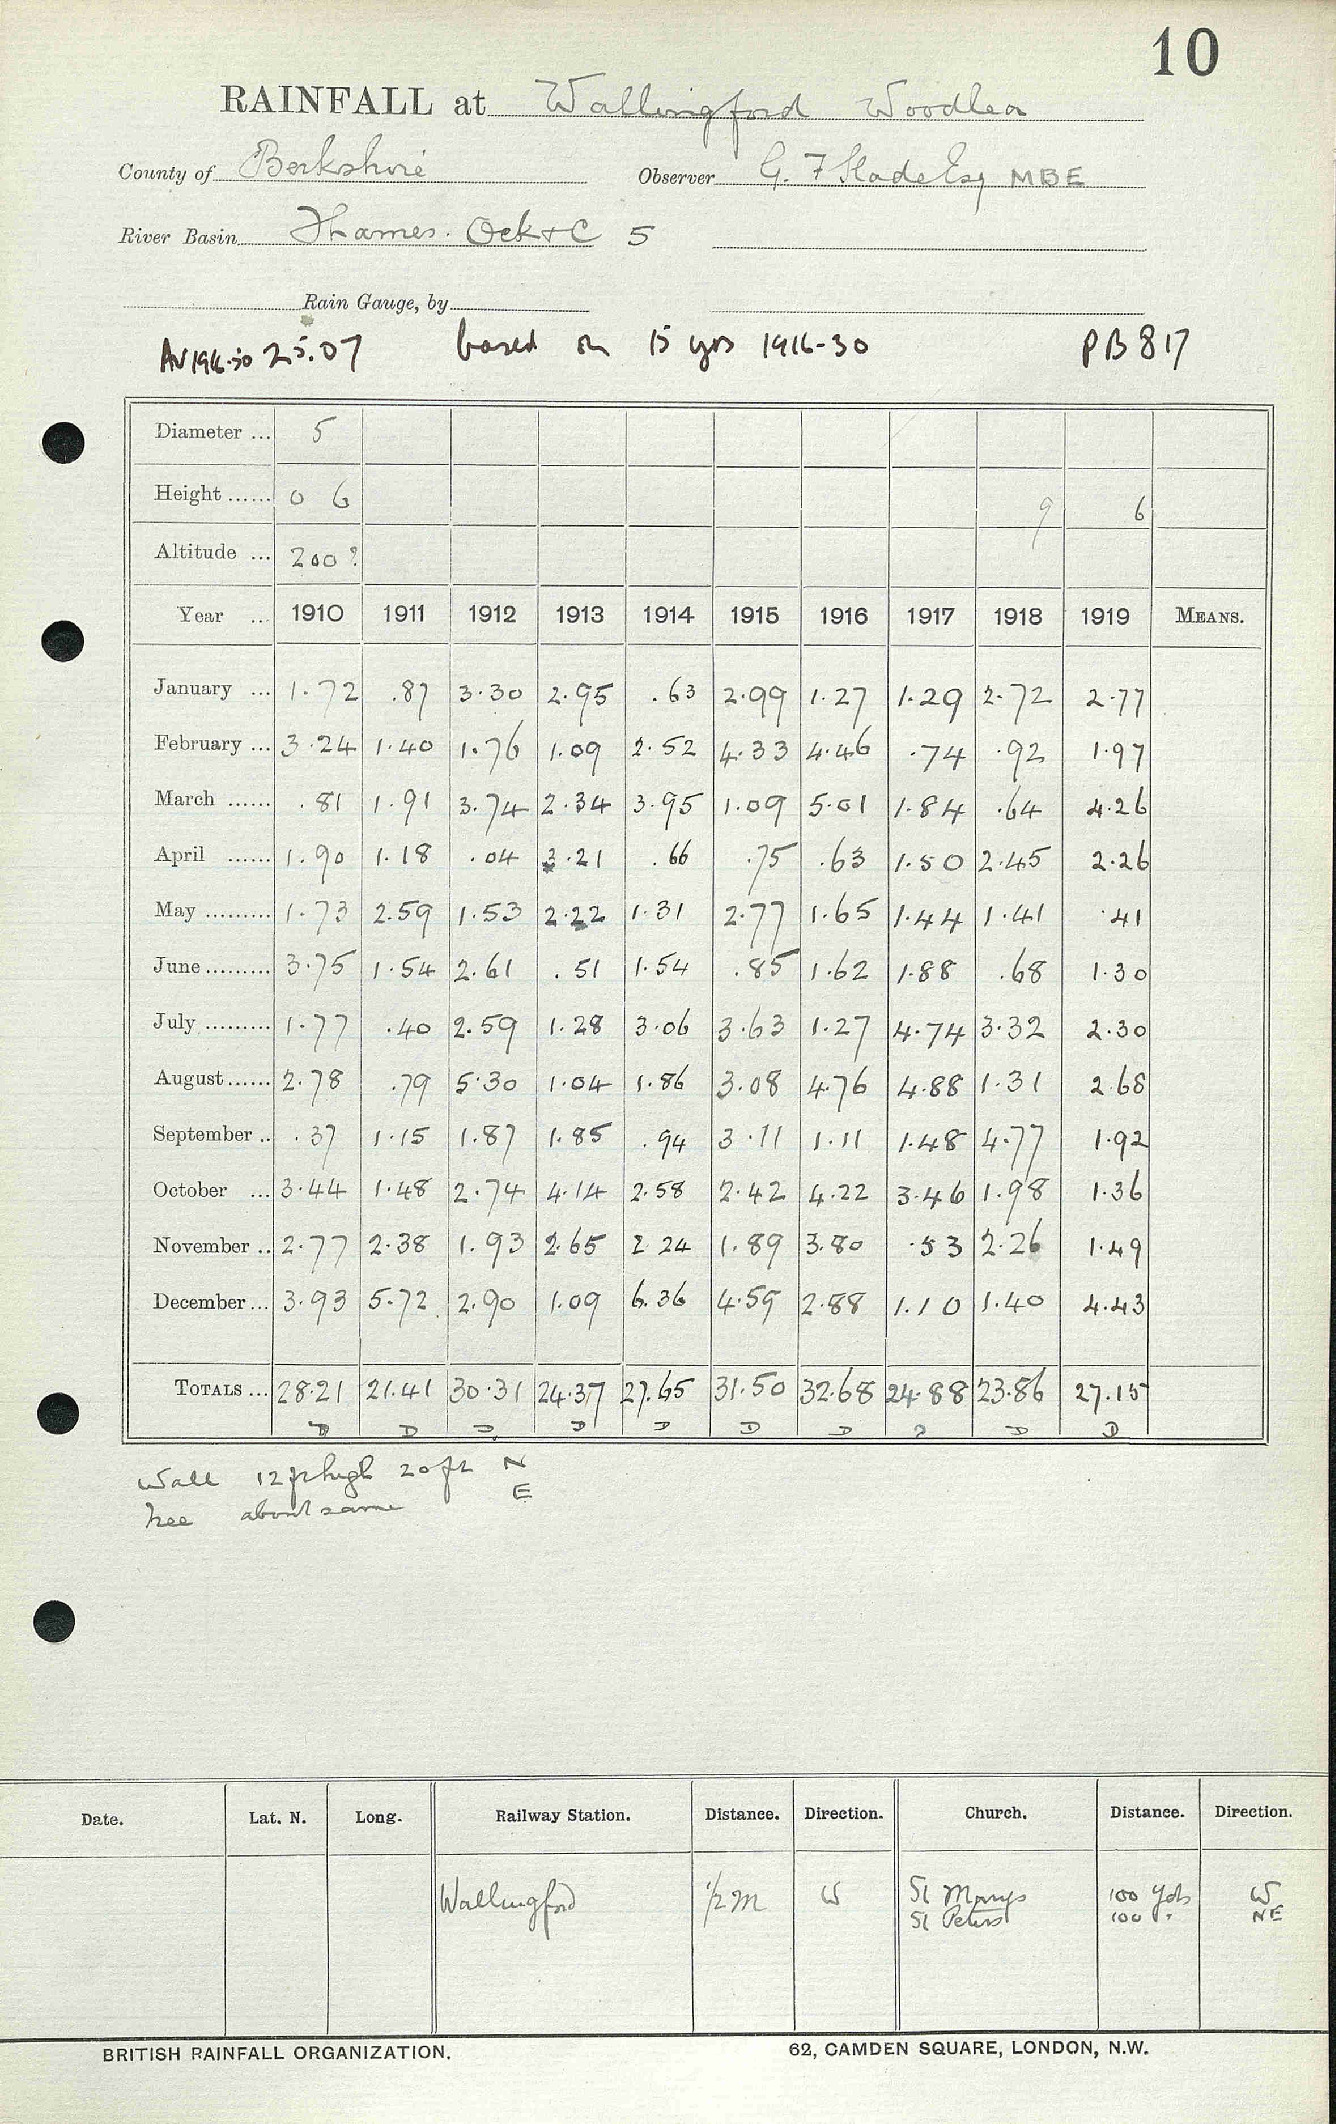 10
RAINFALL at Wallingford Woodlea
County of Berkshire Observer G. F Slade Esq MBE
River Basin Thames. Ock+C 5
Rain Gauge, by
AV 1916-30 25.07 based on 15 yrs 1916-30 PB817
Diameter ... 5
Height ...... 0 6 9 6
Altitude ... 200?
Year ... 1910 1911 1912 1913 1914 1915 1916 1917 1918 1919 MEANS.
January ... 1.72 .87 3.30 2.95 .63 2.99 1.27 1.29 2.72 2.77
February ... 3.24 1.40 1.76 1.09 2.52 4.33 4.46 .74 .92 1.97
March ...... .81 1.91 3.74 2.34 3.95 1.09 5.01 1.84 .64 4.26
April ...... 1.90 1.18 .04 3.21 .66 .75 .63 1.50 2.45 2.26
May ......... 1.73 2.59 1.53 2.22 1.31 2.77 1.65 1.44 1.41 .41
June ......... 3.75 1.54 2.61 .51 1.54 .85 1.62 1.88 .68 1.30
July ......... 1.77 .40 2.59 1.28 3.06 3.63 1.27 4.74 3.32 2.30
August ...... 2.78 .79 5.30 1.04 1.86 3.08 4.76 4.88 1.31 2.68
September .. .37 1.15 1.87 1.85 .94 3.11 1.11 1.48 4.77 1.92
October ... 3.44 1.48 2.74 4.14 2.58 2.42 4.22 3.46 1.98 1.36
November .. 2.77 2.38 1.93 2.65 2.24 1.89 3.80 .53 2.26 1.49
December ... 3.93 5.72 2.90 1.09 6.36 4.59 2.88 1.10 1.40 4.43
TOTALS ... 28.21 21.41 30.31 24.37 27.65 31.50 32.68 24.88 23.86 27.15
D D D D D D D D D D
Wall 12 ft high 20 ft N
Tree about same E
Date. Lat. N. Long. Railway Station. Distance. Direction. Church. Distance. Direction.
Wallingford 1/2 M W St Marys 100 yds W
St Peters 100 " NE
BRITISH RAINFALL ORGANIZATION. 62, CAMDEN SQUARE, LONDON, N.W.